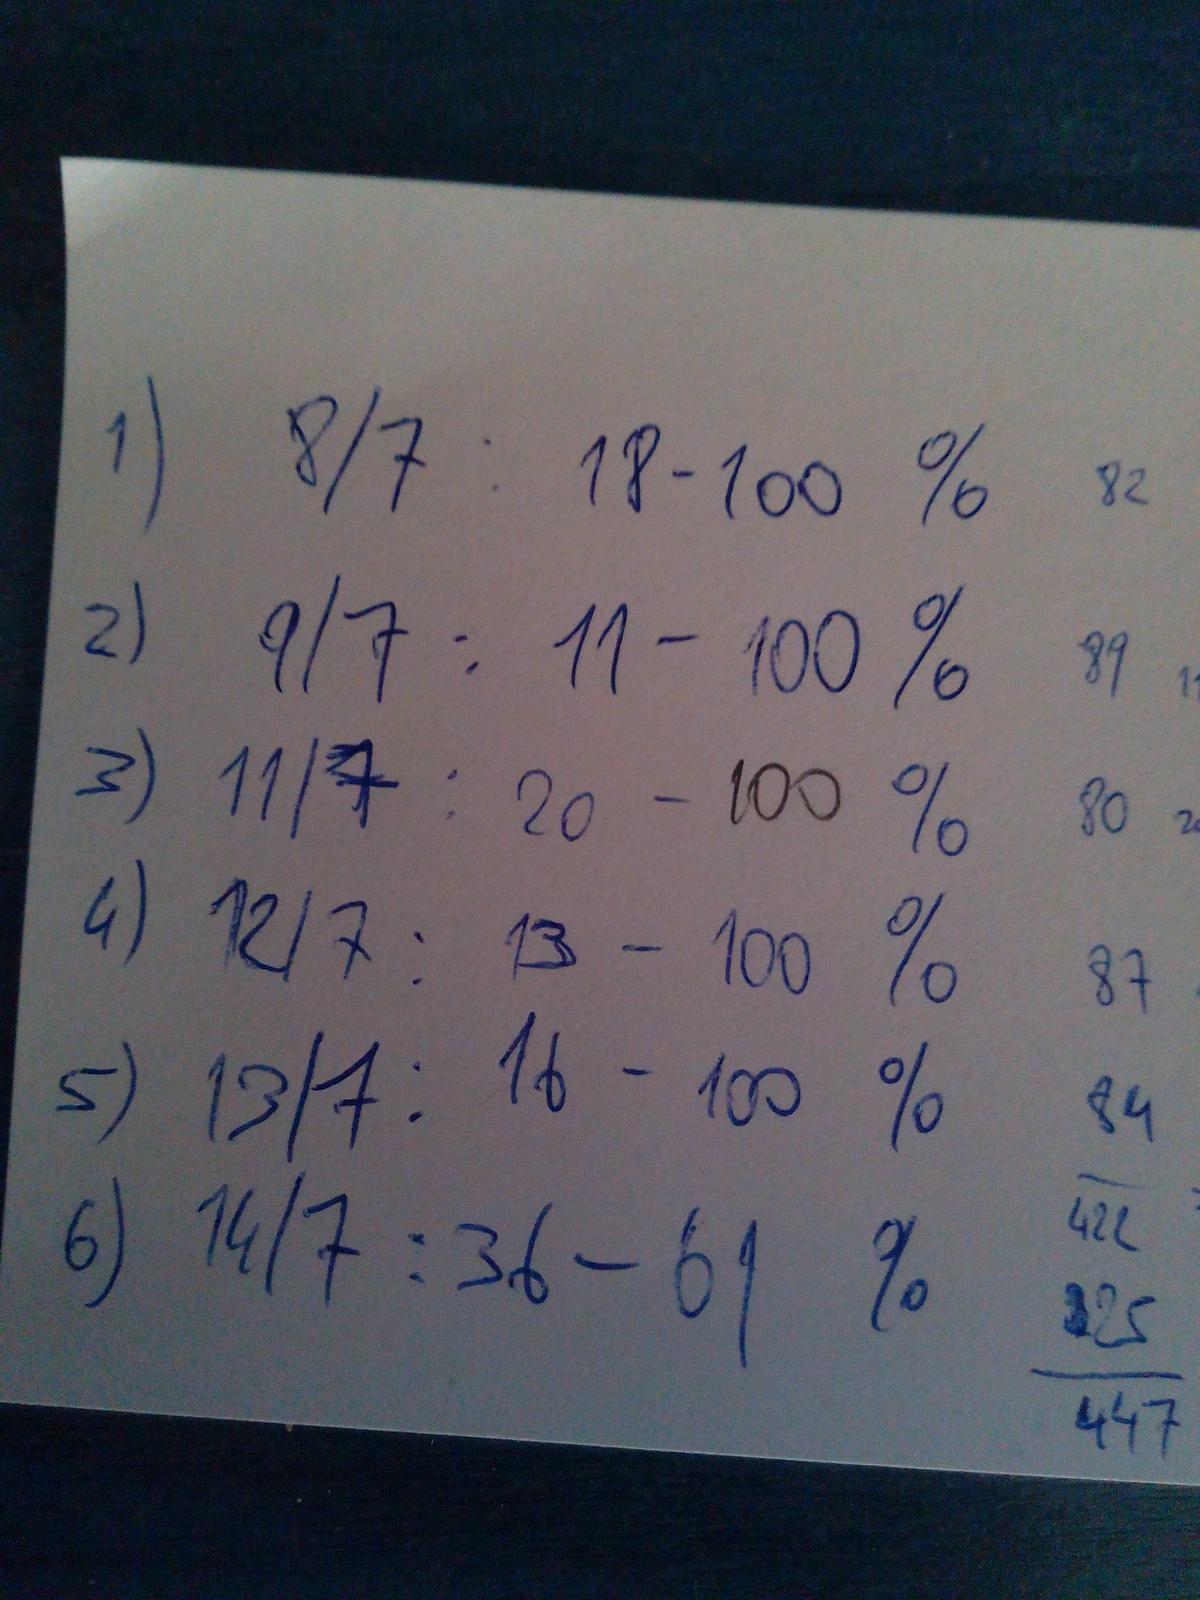 1) 8/7 : 18-100 % 82
2) 9/7 : 11 - 100 % 89 11
3) 11/7 : 20 - 100 % 80 20
4) 12/7 : 13 - 100 % 87
5) 13/7 : 16 - 100 % 84
422
6) 14/7 : 36 - 61 %
25
447